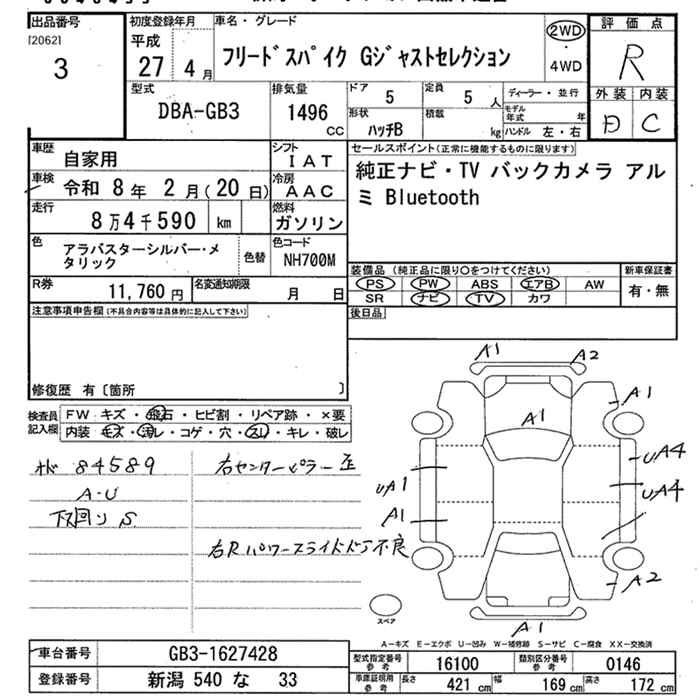 出品番号
[20621
3
初度登録年月
平成
27年 4月
車名・グレード
フリードスパイク Gジャストセレクション
2WD
・
4WD
評価点
R
外装 内装
D C
型式
DBA-GB3
排気量
1496
CC
ドア
5
定員
5人
形状
ハッチB
積載
kg
ディーラー・並行
モデル年式 年
ハンドル 左・右
車歴
自家用
シフト
IAT
車検
令和 8年 2月(20日)
冷房
AAC
走行
8万4千590 km
燃料
ガソリン
色
アラバスターシルバー・メタリック
色替
色コード
NH700M
R券
11,760円
名変通知期限
月 日
セールスポイント(正常に機能するものに限ります)
純正ナビ・TV バックカメラ アル
ミ Bluetooth
装備品 (純正品に限り○をつけてください)
PS PW ABS エアB AW
SR ナビ TV カワ
新車保証書
有・無
後日品
注意事項申告欄(不具合内容等は具体的に記入して下さい)
修復歴 有〔箇所 〕
検査員
記入欄
FW キズ・飛石・ヒビ割・リペア跡・×要
内装 キズ・汚れ・コゲ・穴・スレ・キレ・破レ
84589
A-U
下回り S
右センターピラー歪
右Rパワースライドドア不良
A1
A2
A1
A1
UA4
UA1
UA4
A1
A2
A1
スペア
A-キズ E-エクボ U-凹み W-補修跡 S-サビ C-腐食 XX-交換済
車台番号
GB3-1627428
登録番号
新潟 540 な 33
型式指定番号
参考
16100
類別区分番号
参考
0146
車庫証明用
参考
長さ 421 cm 幅 169 cm 高さ 172 cm